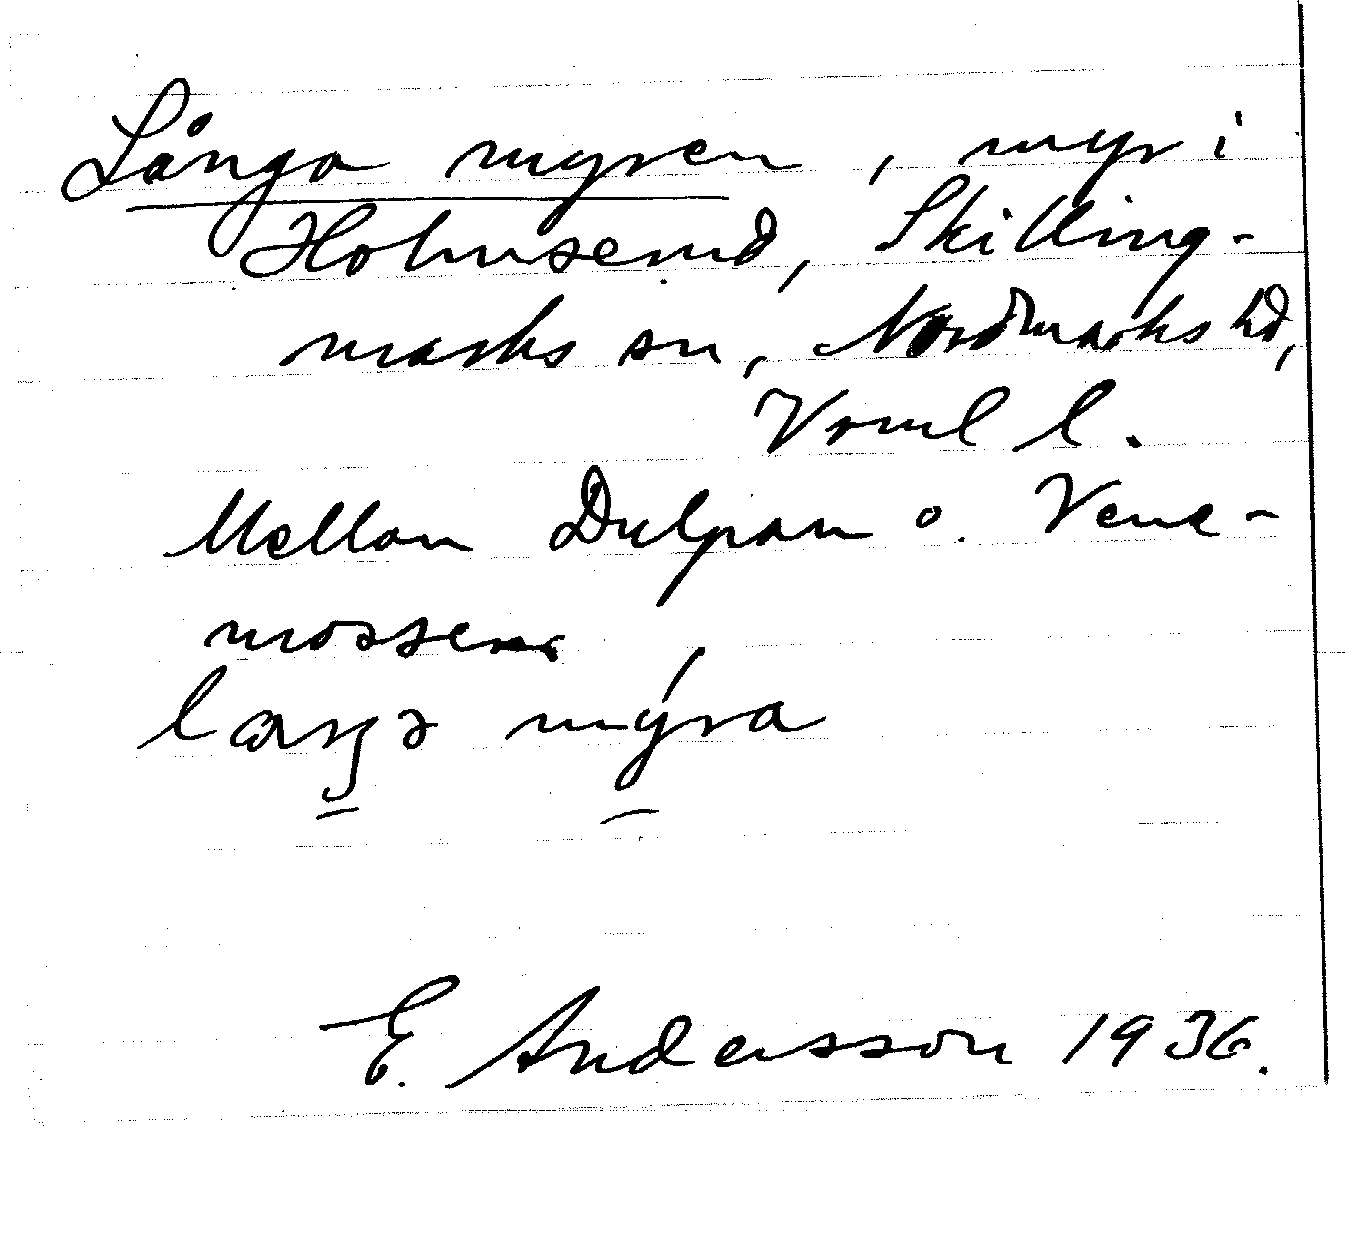 Långa myren, myr i
Holmserud, Skilling-
marks sn, Nordmarks hd,
Vrml l.
Mellan Dulpan o. Vene-
mossen
myra
E. Andersson 1936.